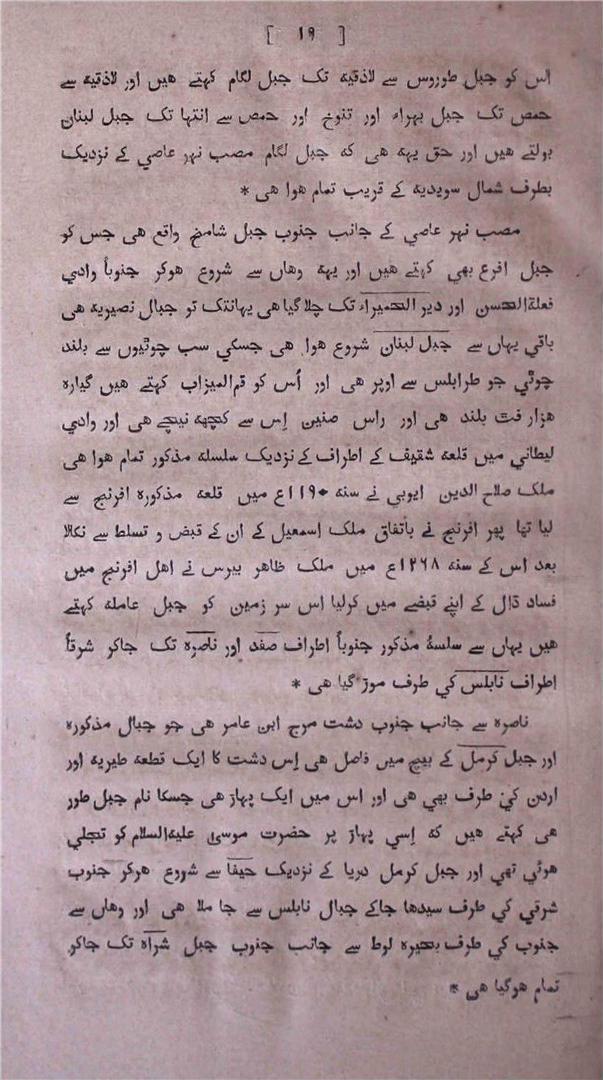 [ ١٩ ]
اس کو جبل طوروس سے لاذقیه تک جبل لگام کہتے هیں اور لاذقیه سے
حمص تک جبل بهراء اور تنوخ اور حمص سے انتها تک جبل لبنان
بولتے هیں اور حق یهه هی که جبل لگام مصب نهر عاصي کے نزدیک
بطرف شمال سویدیه کے قریب تمام هوا هی *
مصب نهر عاصي کے جانب جنوب جبل شامخ واقع هی جس کو
جبل اقرع بهي کہتے هیں اور یهه وهاں سے شروع هوکر جنوباً وادي
فعلةالحسن اور دیر الحمیراء تک چلا گیا هی یهانتک تو جبال نصیریه هی
باقي یهاں سے جبل لبنان شروع هوا هی جسکي سب چوٹیوں سے بلند
چوٹي جو طرابلس سے اوپر هی اور اُس کو قم المیزاب کہتے هیں گیاره
هزار فٹ بلند هی اور راس صنین اِس سے کچهه نیچے هی اور وادي
لیطاني میں قلعه شقیف کے اطراف کے نزدیک سلسله مذکور تمام هوا هی
ملک صلاح الدین ایوبي نے سنه ١١٩٠ع میں قلعه مذکوره افرنج سے
لیا تها پهر افرنج نے باتفاق ملک اِسمعیل کے ان کے قبض و تسلط سے نکالا
بعد اس کے سنه ١٢٦٨ع میں ملک ظاهر بیبرس نے اهل افرنج میں
فساد ڈال کے اپنے قبضے میں کرلیا اس سر زمین کو جبل عامله کہتے
هیں یهاں سے سلسهٔ مذکور جنوباً اطراف صفد اور ناصره تک جاکر شرقاً
اطراف نابلس کي طرف موڑ گیا هی *
ناصره سے جانب جنوب دشت مرج ابن عامر هی جو جبال مذکوره
اور جبل کرمل کے بیچ میں فاصل هی اِس دشت کا ایک قطعه طیریه اور
اردن کي طرف بهي هی اور اس میں ایک پهاڑ هی جسکا نام جبل طور
هی کہتے هیں که اِسي پهاڑ پر حضرت موسی علیه السلام کو تجلي
هوئي تهي اور جبل کرمل دریا کے نزدیک حیفا سے شروع هوکر جنوب
شرقي کي طرف سیدها جاکے جبال نابلس سے جا ملا هی اور وهاں سے
جنوب کي طرف بحیره لوط سے جانب جنوب جبل شراه تک جاکر
تمام هوگیا هی *